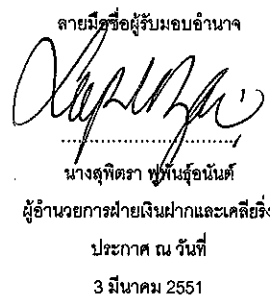 ลายมือชื่อผู้รับมอบอำนาจ
นางสุพิตรา ฟูพันธุ์อนันต์
ผู้อำนวยการฝ่ายเงินฝากและเคลียริ่ง
ประกาศ ณ วันที่
3 มีนาคม 2551